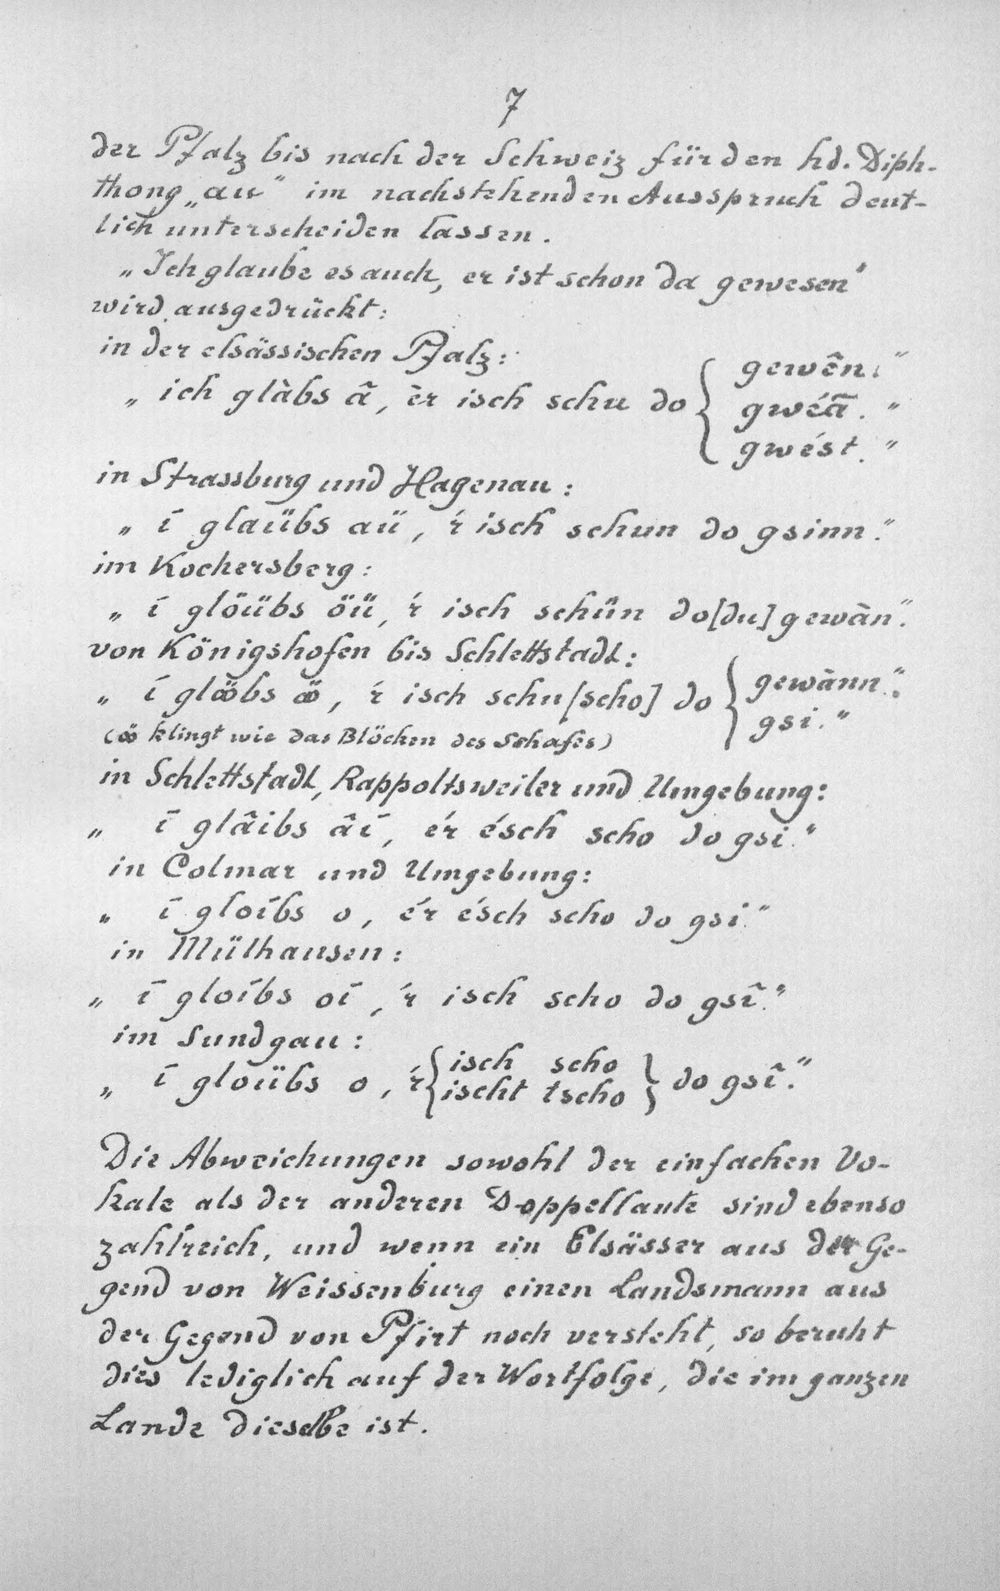 7
der Pfalz bis nach der Schweiz für den hd. Diph-
thong „au“ im nachstehenden Ausspruch deut-
lich unterscheiden lassen.
„Ich glaube es auch, er ist schon da gewesen“
wird ausgedrückt:
in der elsässischen Pfalz:
„ich glàbs â, èr isch schu do { gewên.“
gwéã.“
gwést.“
in Strassburg und Hagenau:
„ī glaübs aü, ’r isch schun do gsinn.“
im Kochersberg:
„ī glöübs öü, ’r isch schûn do [du] gewàn“.
von Königshofen bis Schlettstadt:
„ī glööbs öö, ’r isch schu [scho] do { gewànn.“
gsi.“
(öö klingt wie das Blöcken des Schafes)
in Schlettstadt, Rappoltsweiler und Umgebung:
„ī glâibs âī, ér ésch scho do gsi.“
in Colmar und Umgebung:
„ī gloíbs o, ér ésch scho do gsi.“
in Mülhausen:
„ī gloíbs oí, ’r isch scho do gsî.“
im Sundgau:
„ī gloübs o, ’r { isch scho } do gsî.“
ischt tscho
Die Abweichungen sowohl der einfachen Vo-
kale als der anderen Doppellaute sind ebenso
zahlreich, und wenn ein Elsässer aus der Ge-
gend von Weissenburg einen Landsmann aus
der Gegend von Pfirt noch versteht, so beruht
dies lediglich auf der Wortfolge, die im ganzen
Lande dieselbe ist.